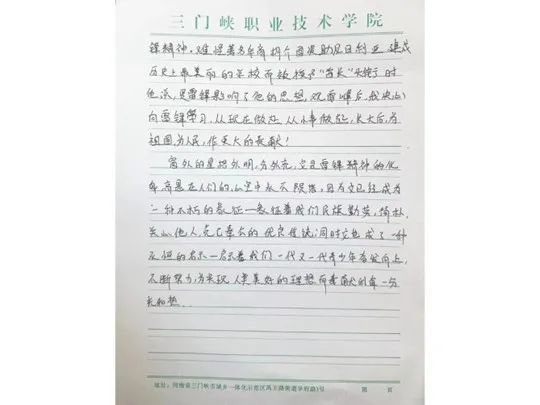 三门峡职业技术学院
锋精神。难怪著名华裔胡介国资助尼日利亚建成
历史上最美丽的学校而被授予“酋长”头衔时
他说，是雷锋影响了他的思想，观雷峰后，我决心
向雷锋学习，从现在做起，从小事做起，长大后，为
祖国，为人民，作更大的贡献！
窗外的星格外明，分外亮，它是雷锋精神的化
身高悬在人们的心空中永不陨落，因为它已经成为
一种不朽的象征—象征着我们民族勤劳，简朴，
关心他人，克己奉公的优良传统；同时它也成了一种
永恒的启示—启示着我们一代又一代青少年奋发向上，
不断努力，为实现人类美好的理想而贡献自己一分
光和热。
地址：河南省三门峡市城乡一体化示范区禹王路街道学府路1号 第 页